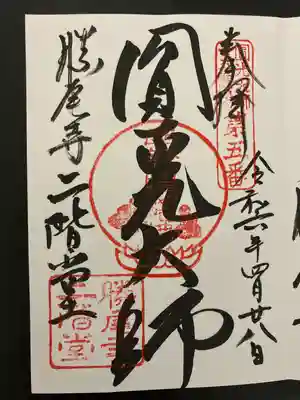 奉拝
第五番
令和六年四月廿八日
圓光大師
勝尾寺二階堂
勝尾寺
二階堂